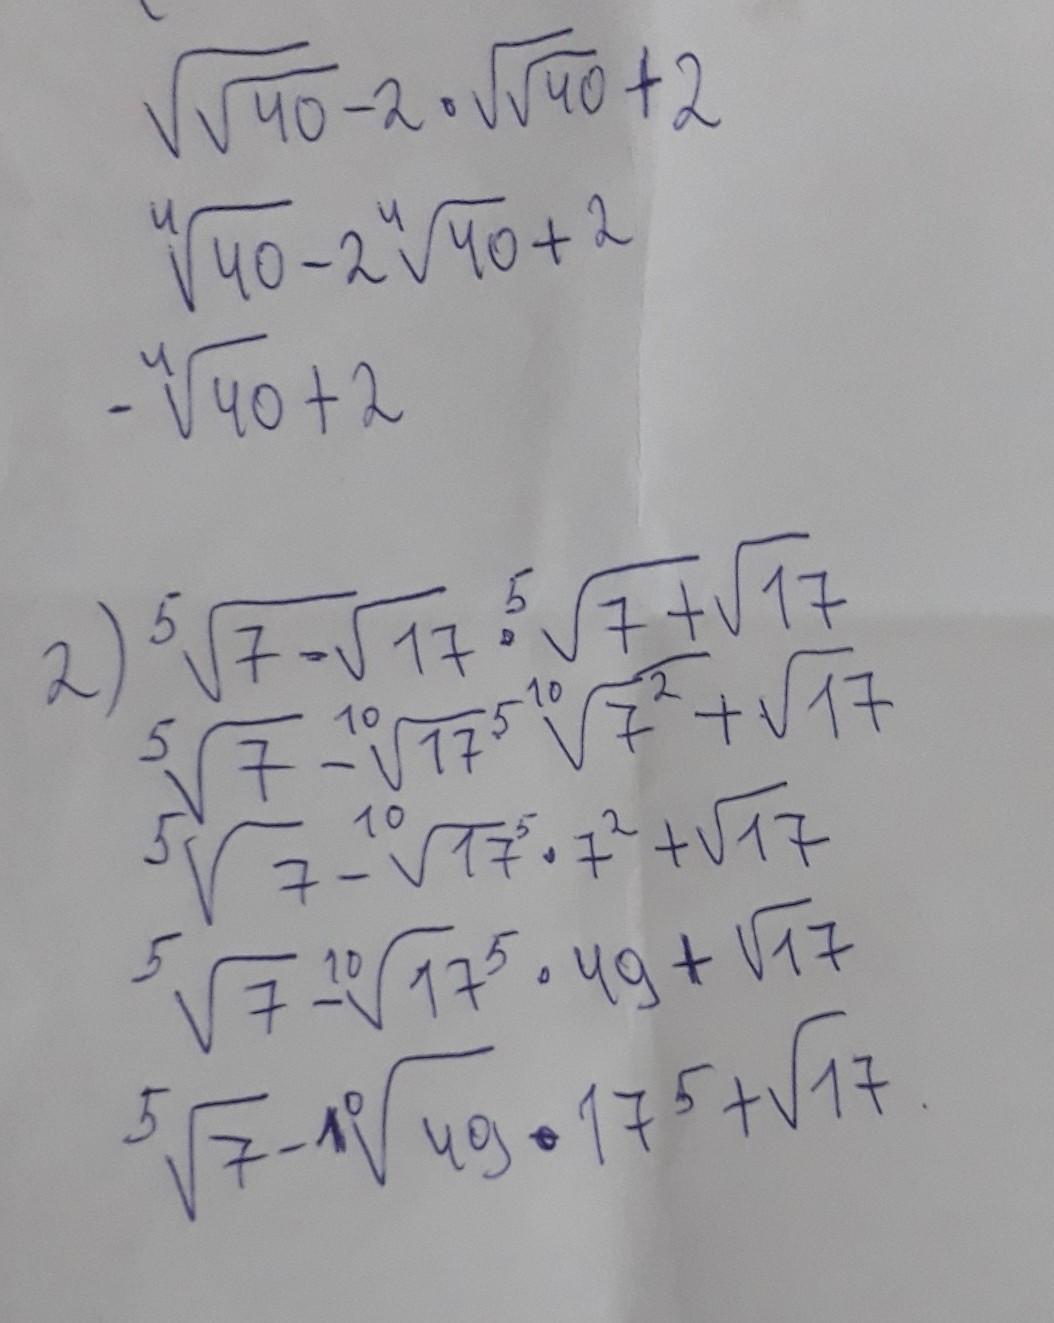 √√40 - 2 · √√40 + 2
⁴√40 - 2 ⁴√40 + 2
- ⁴√40 + 2
2) ⁵√7 - √17 · ⁵√7 + √17
⁵√7 - ¹⁰√17⁵ ¹⁰√7² + √17
⁵√7 - ¹⁰√17⁵ · 7² + √17
⁵√7 - ¹⁰√17⁵ · 49 + √17
⁵√7 - ¹⁰√49 · 17⁵ + √17